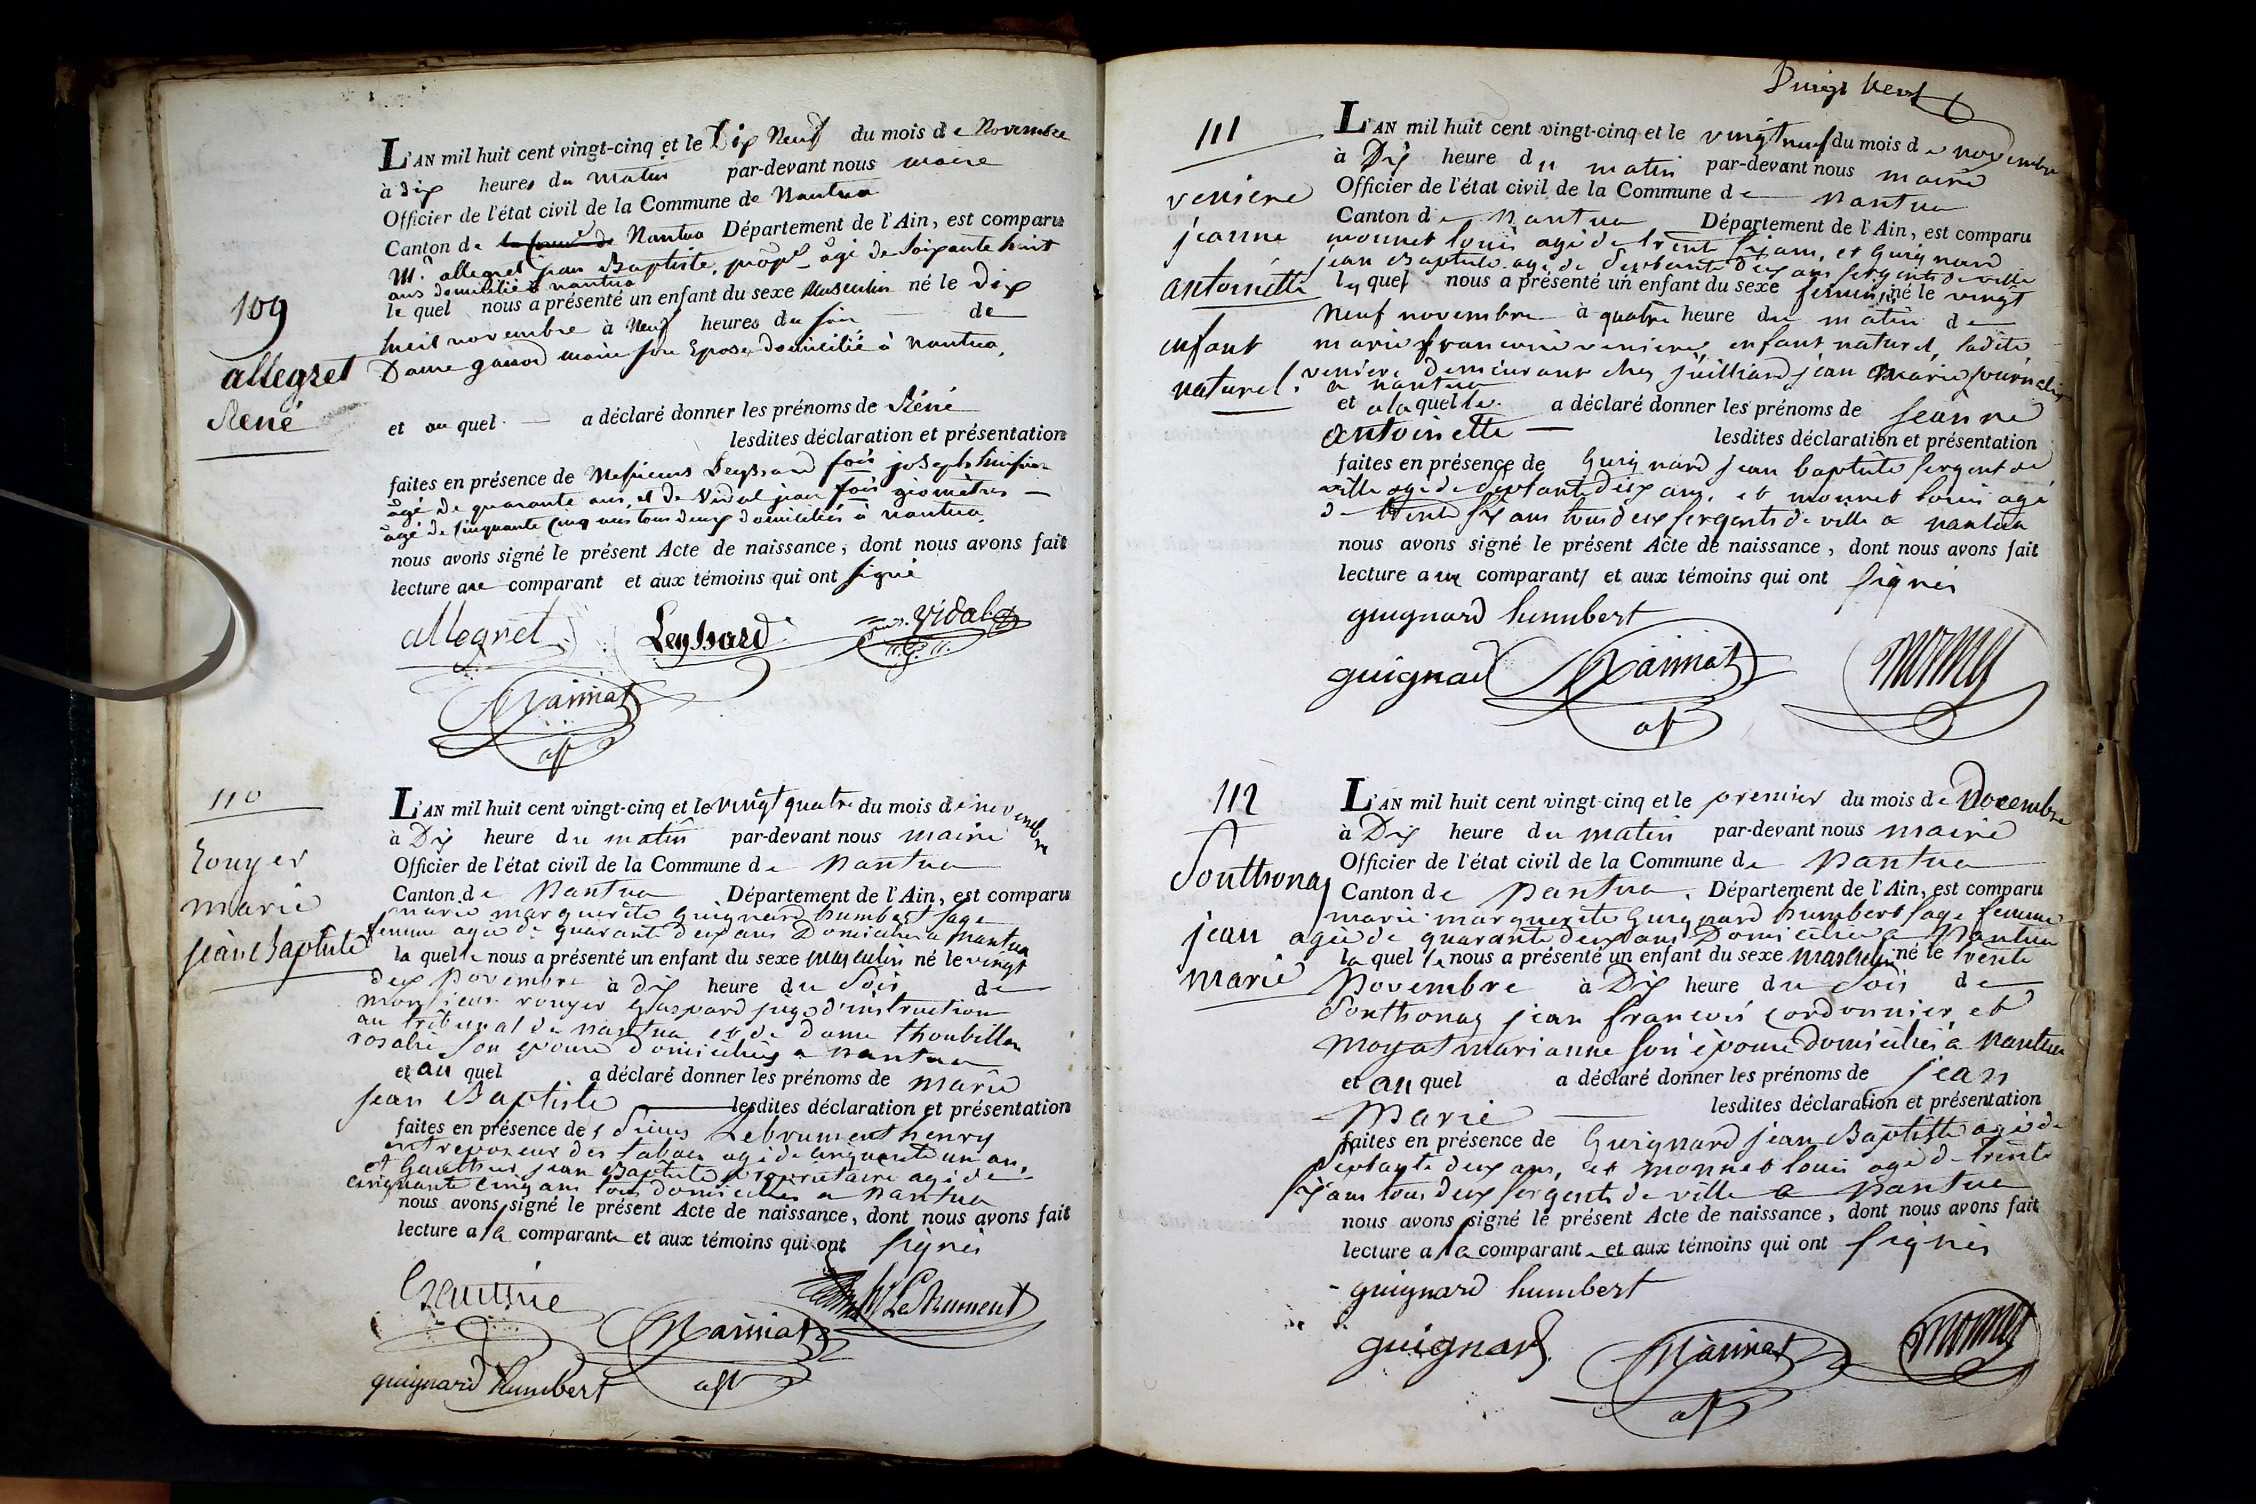 109
allegret
René
L'AN mil huit cent vingt-cinq et le Dix Neuf du mois de Novembre
à dix heures du matin par-devant nous maire
Officier de l'état civil de la Commune de Nantua
Canton de Nantua Département de l'Ain, est comparu
Mr. allegret jean Baptiste, propre. âgé de soixante huit
ans domicilié à nantua
le quel nous a présenté un enfant du sexe Masculin né le Dix
huit novembre à Neuf heures du soir de
Dame marie son Epose, domicilié à nantua,
et au quel a déclaré donner les prénoms de Réné
lesdites déclaration et présentation
faites en présence de Messieurs Leyssard fois joseph
âgé de quarante ans, et de Vidal jean fois géomètres
âgé de sinquante cinq ans tous deux domiciliés à nantua,
nous avons signé le présent Acte de naissance, dont nous avons fait
lecture aux comparant et aux témoins qui ont signé
allegret Leyssard Vidal
110
rouyer
marie
jean Baptiste
L'AN mil huit cent vingt-cinq et le vingt quatre du mois de novembre
à Dix heure du matin par-devant nous maire
Officier de l'état civil de la Commune de Nantua
Canton de Nantua Département de l'Ain, est comparu
marie marguerite guignard humbert sage
femme agée de quarante deux ans Domiciliée a Nantua
la quelle nous a présenté un enfant du sexe masculin né le vingt
deux Novembre à dix heure du Soir de
monsieur rouyer gaspard juge d'instruction
au tribunal de nantua et de dame
rosalie son épouse domiciliés a nantua
et au quel a déclaré donner les prénoms de marie
jean Baptiste lesdites déclaration et présentation
faites en présence des Sieurs Lebrument henry
entreposeur des tabacs agé de cinquante un an,
et Gauthier jean Baptiste propriétaire agé de
cinquante cinq ans tous domiciliés a nantua
nous avons signé le présent Acte de naissance, dont nous avons fait
lecture a la comparante et aux témoins qui ont signés
LeBrument
guignard humbert
111
veniere
jeanne
antoinette
enfant
naturel.
L'AN mil huit cent vingt-cinq et le vingt neuf du mois de novembre
à Dix heure du matin par-devant nous maire
Officier de l'état civil de la Commune de nantua
Canton de nantua Département de l'Ain, est comparu
monnet louis agé de trente six ans, et Guignard
jean Baptiste agé de septante deux ans sergents de ville
lesquels nous a présenté un enfant du sexe feminin né le vingt
Neuf novembre à quatre heure du matin de
marie francoise veniere, enfant naturel, ladite
veniere demeurant chez juilliard jean marie journalier
a nantua
et a laquelle a déclaré donner les prénoms de jeanne
antoinette lesdites déclaration et présentation
faites en présence de Guignard jean baptiste sergent de
ville agé de septante deux ans, et monnet louis agé
de trente six ans tous deux sergents de ville a nantua
nous avons signé le présent Acte de naissance, dont nous avons fait
lecture aux comparants et aux témoins qui ont signés
guignard humbert
guignard
112
Southonay
jean
marie
L'AN mil huit cent vingt-cinq et le premier du mois de Decembre
à Dix heure du matin par-devant nous maire
Officier de l'état civil de la Commune de Nantua
Canton de Nantua. Département de l'Ain, est comparu
marie marguerite Guignard humbert sage femme
agée de quarante deux ans Domiciliée a Nantua
la quelle nous a présenté un enfant du sexe masculin né le trente
Novembre à Dix heure du Soir de
Southonay jean francois cordonnier et
Moyat marianne son épouse domiciliés a nantua
et au quel a déclaré donner les prénoms de jean
Marie lesdites déclaration et présentation
faites en présence de Guignard jean Baptiste agé de
septante deux ans, et monnet louis agé de trente
six ans tous deux sergents de ville a Nantua
nous avons signé le présent Acte de naissance, dont nous avons fait
lecture a la comparante et aux témoins qui ont signés
guignard humbert
guignard